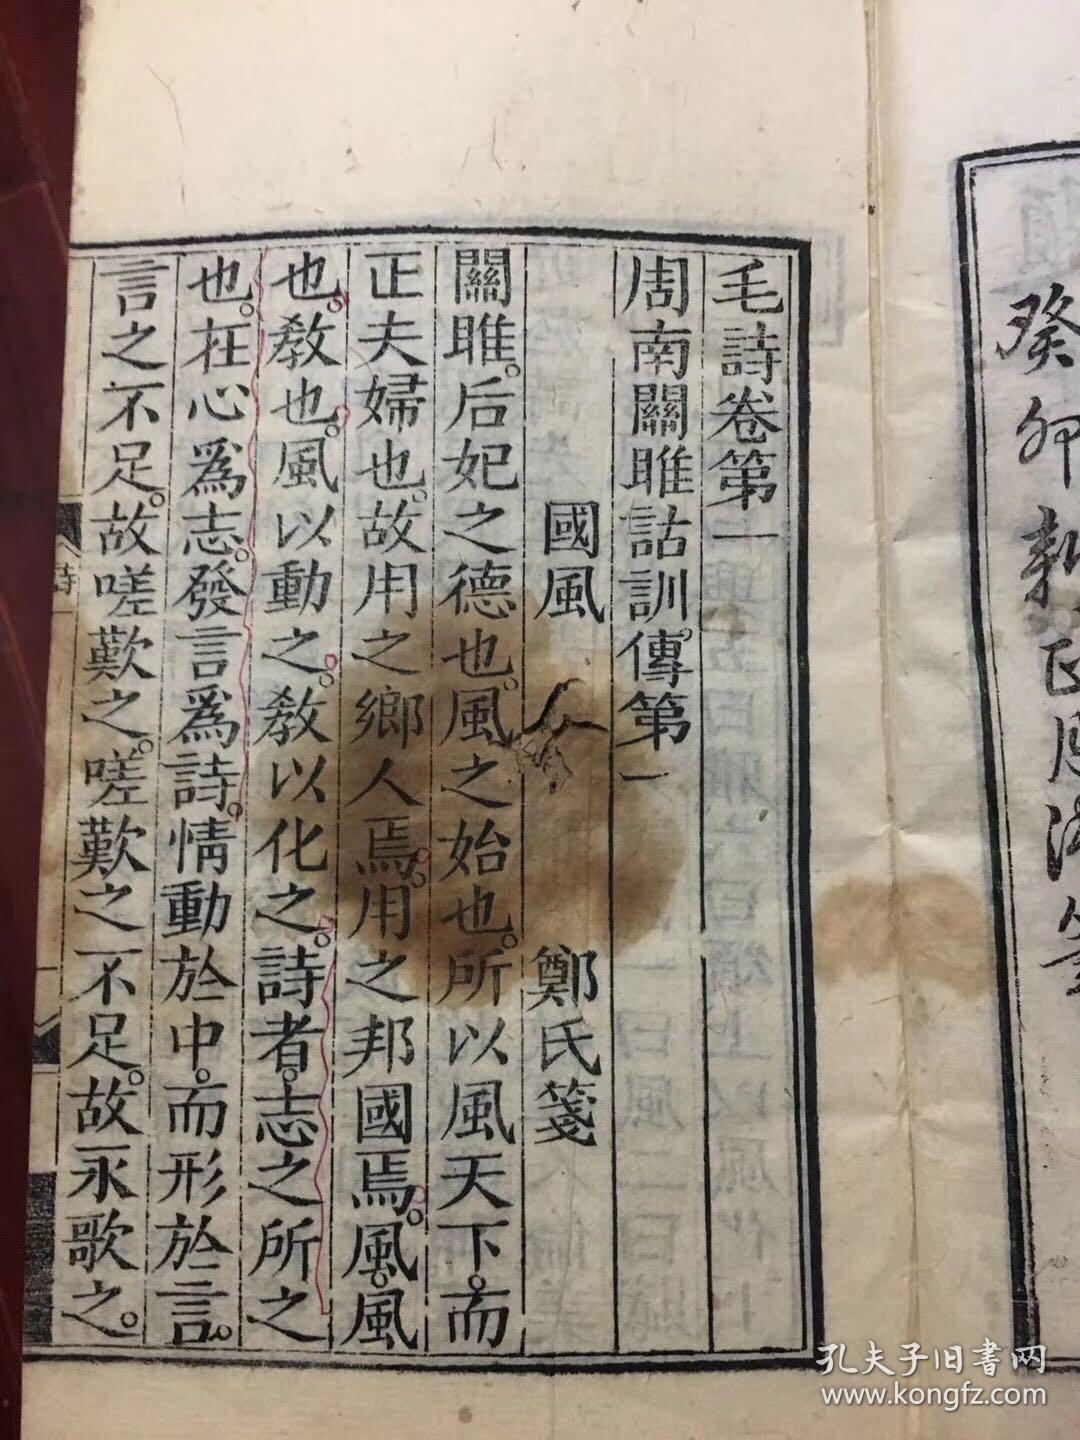 毛詩卷第一
周南關雎詁訓傳第一
國風　鄭氏箋
關雎。后妃之德也。風之始也。所以風天下。而
正夫婦也。故用之鄉人焉。用之邦國焉。風。風
也。敎也。風以動之。敎以化之。詩者。志之所之
也。在心爲志。發言爲詩。情動於中。而形於言。
言之不足。故嗟歎之。嗟歎之不足。故永歌之。
詩一
癸卯
孔夫子旧書网
www.kongfz.com